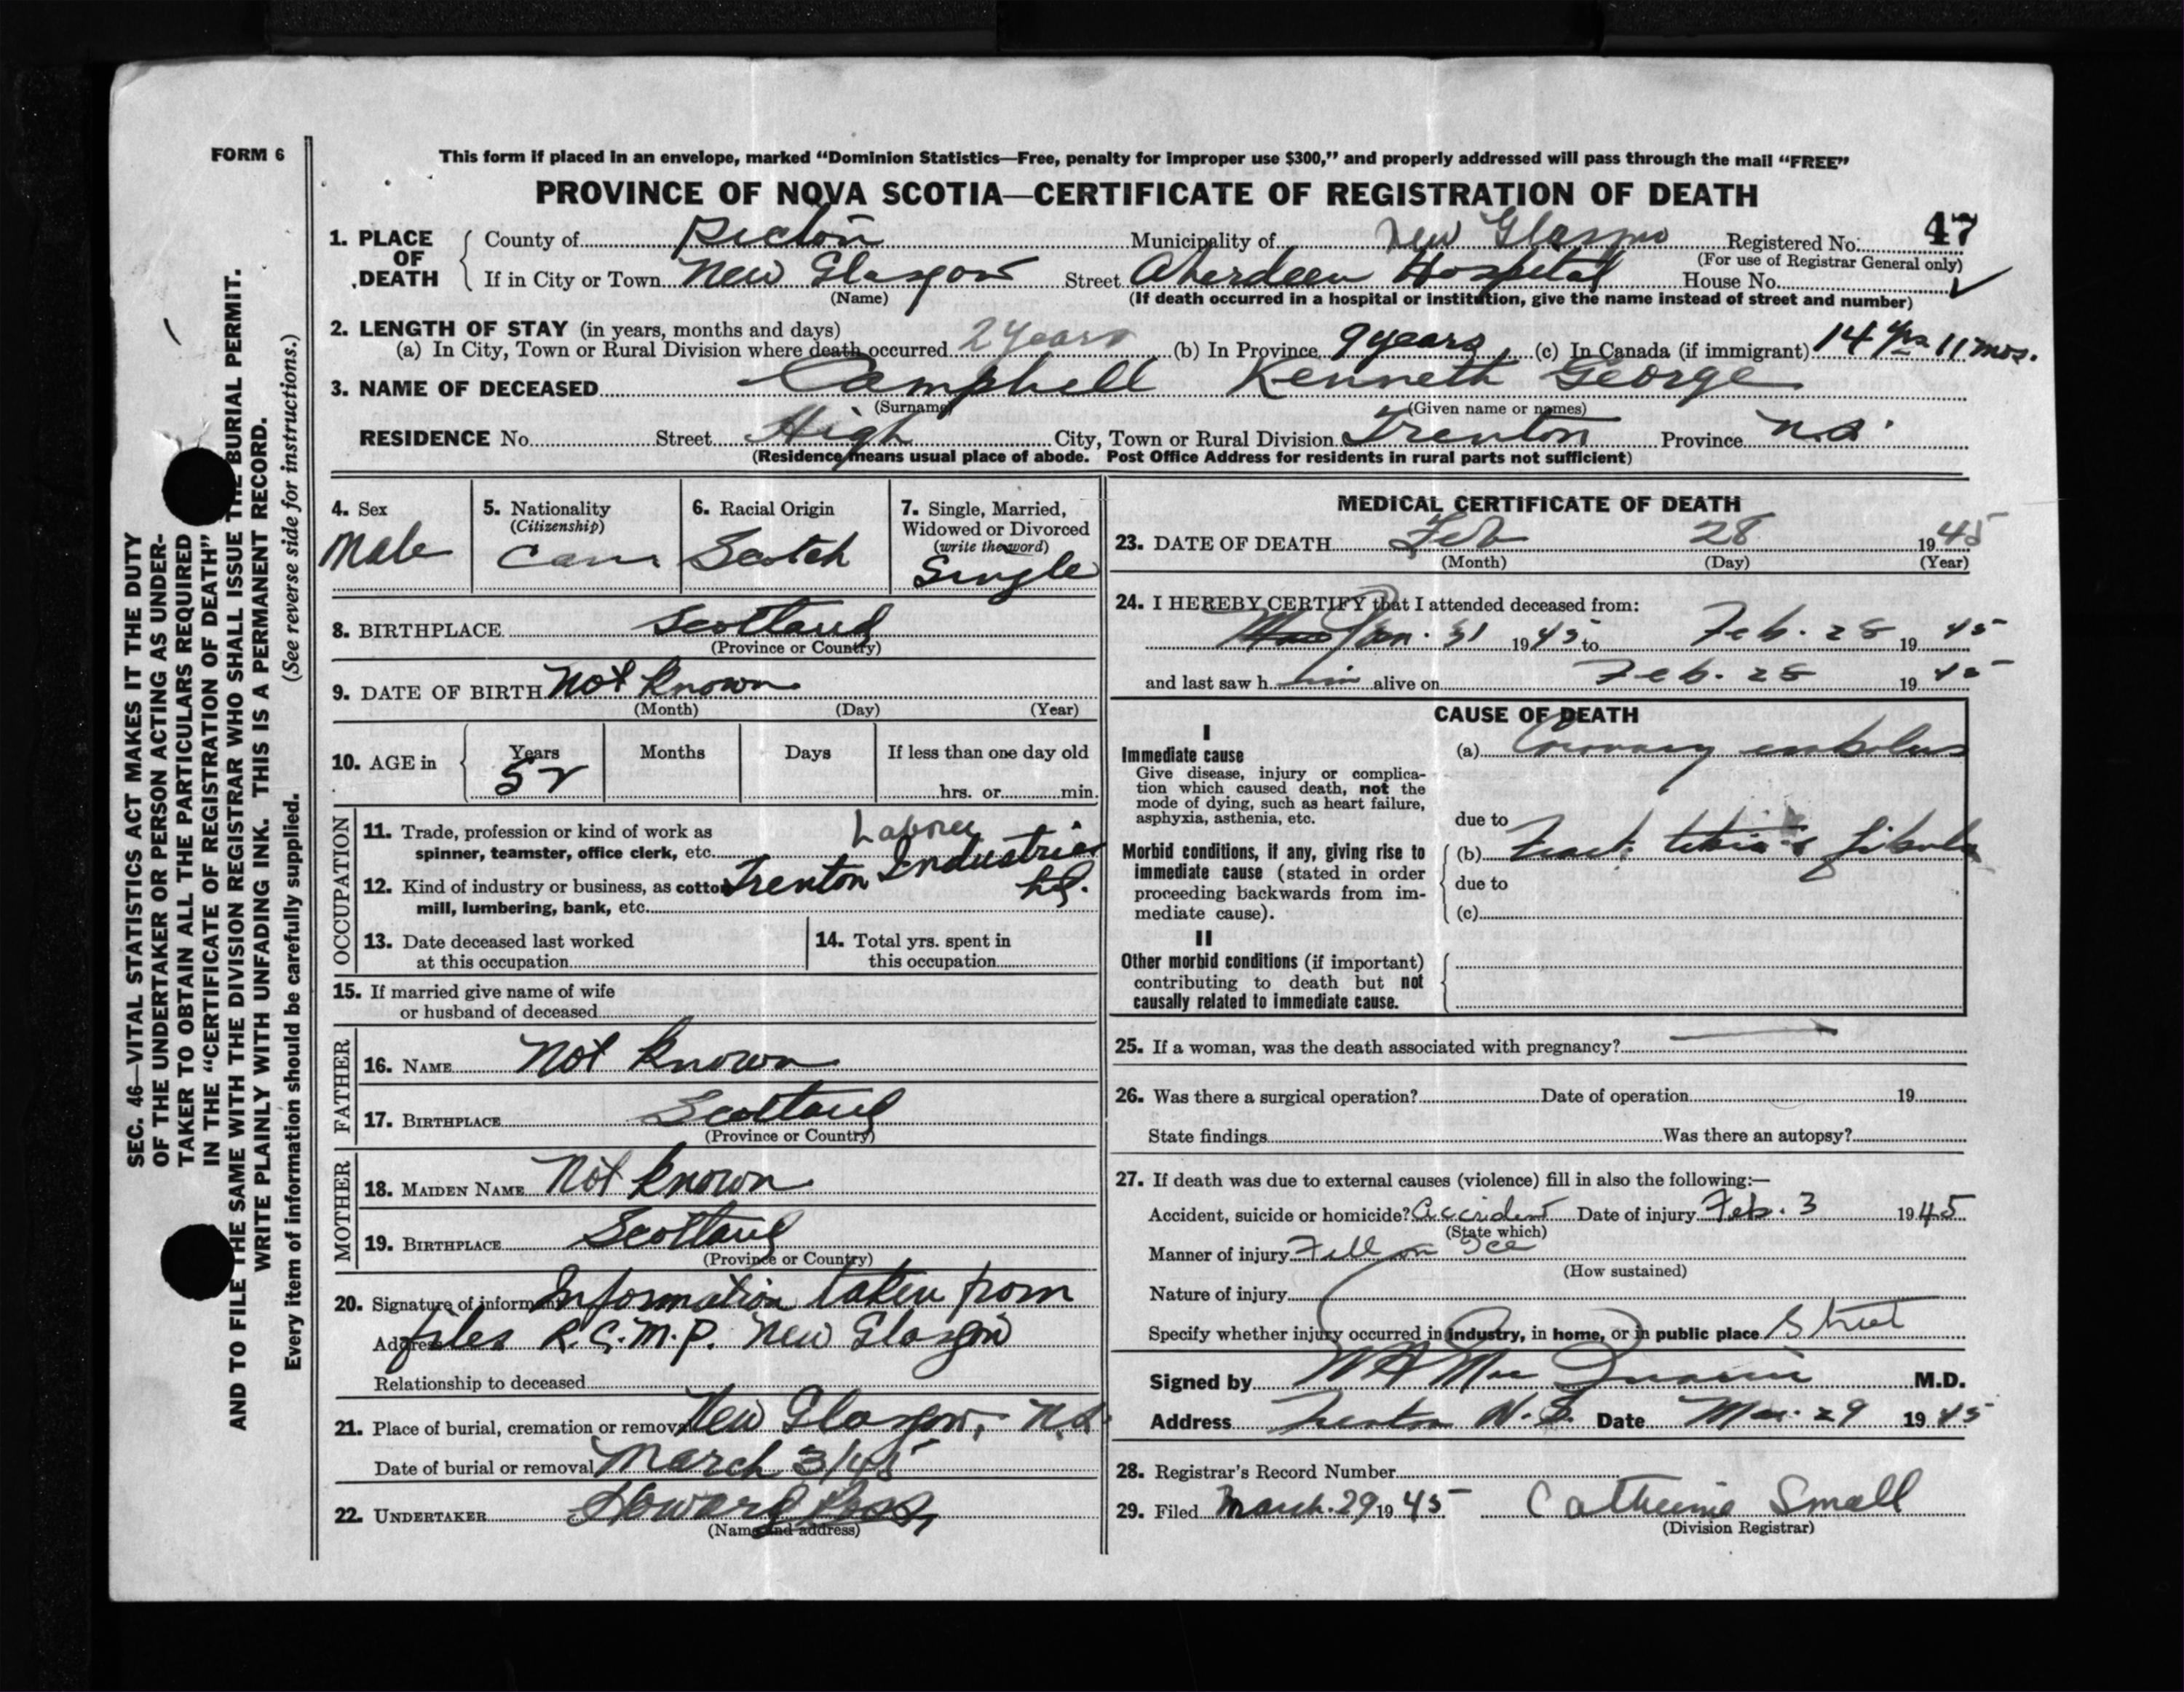 FORM 6
This form if placed in an envelope, marked “Dominion Statistics—Free, penalty for improper use $300,” and properly addressed will pass through the mail “FREE”
PROVINCE OF NOVA SCOTIA—CERTIFICATE OF REGISTRATION OF DEATH
1. PLACE OF DEATH
County of Pictou Municipality of New Glasgow Registered No. 47
(For use of Registrar General only)
If in City or Town New Glasgow Street Aberdeen Hospital House No.
(Name) (If death occurred in a hospital or institution, give the name instead of street and number)
2. LENGTH OF STAY (in years, months and days)
(a) In City, Town or Rural Division where death occurred 2 years (b) In Province 9 years (c) In Canada (if immigrant) 14 yrs 11 mos.
3. NAME OF DECEASED Campbell Kenneth George
(Surname) (Given name or names)
RESIDENCE No. Street High City, Town or Rural Division Trenton Province N.S.
(Residence means usual place of abode. Post Office Address for residents in rural parts not sufficient)
4. Sex
Male
5. Nationality
(Citizenship)
Can
6. Racial Origin
Scotch
7. Single, Married,
Widowed or Divorced
(write the word)
Single
8. BIRTHPLACE Scotland
(Province or Country)
9. DATE OF BIRTH Not known
(Month) (Day) (Year)
10. AGE in Years Months Days If less than one day old
52 hrs. or min.
OCCUPATION
11. Trade, profession or kind of work as
spinner, teamster, office clerk, etc. Laborer
12. Kind of industry or business, as cotton
mill, lumbering, bank, etc. Trenton Industries
Ltd.
13. Date deceased last worked
at this occupation
14. Total yrs. spent in
this occupation
15. If married give name of wife
or husband of deceased
FATHER
16. NAME Not known
17. BIRTHPLACE Scotland
(Province or Country)
MOTHER
18. MAIDEN NAME Not known
19. BIRTHPLACE Scotland
(Province or Country)
20. Signature of informant Information taken from
Address files R.C.M.P. New Glasgow
Relationship to deceased
21. Place of burial, cremation or removal New Glasgow, N.S.
Date of burial or removal March 3/45
22. UNDERTAKER Howard Ross
(Name and address)
MEDICAL CERTIFICATE OF DEATH
23. DATE OF DEATH Feb 28 1945
(Month) (Day) (Year)
24. I HEREBY CERTIFY that I attended deceased from:
Jan. 31 1945 to Feb. 28 1945
and last saw h him alive on Feb. 28 1945
CAUSE OF DEATH
I
Immediate cause
Give disease, injury or complica-
tion which caused death, not the
mode of dying, such as heart failure,
asphyxia, asthenia, etc.
(a) Coronary embolus
due to
Morbid conditions, if any, giving rise to
immediate cause (stated in order
proceeding backwards from im-
mediate cause).
(b) Fract. tibia & fibula
due to
(c)
II
Other morbid conditions (if important)
contributing to death but not
causally related to immediate cause.
25. If a woman, was the death associated with pregnancy?
26. Was there a surgical operation? Date of operation 19
State findings Was there an autopsy?
27. If death was due to external causes (violence) fill in also the following:—
Accident, suicide or homicide? Accident Date of injury Feb. 3 1945
(State which)
Manner of injury Fell on Ice
(How sustained)
Nature of injury
Specify whether injury occurred in industry, in home, or in public place Street
Signed by M.D.
Address Trenton N.S. Date Mar. 29 1945
28. Registrar's Record Number
29. Filed March 29 1945 Catherine Small
(Division Registrar)
SEC. 46—VITAL STATISTICS ACT MAKES IT THE DUTY
OF THE UNDERTAKER OR PERSON ACTING AS UNDER-
TAKER TO OBTAIN ALL THE PARTICULARS REQUIRED
IN THE “CERTIFICATE OF REGISTRATION OF DEATH”
AND TO FILE THE SAME WITH THE DIVISION REGISTRAR WHO SHALL ISSUE THE BURIAL PERMIT.
WRITE PLAINLY WITH UNFADING INK. THIS IS A PERMANENT RECORD.
Every item of information should be carefully supplied. (See reverse side for instructions.)